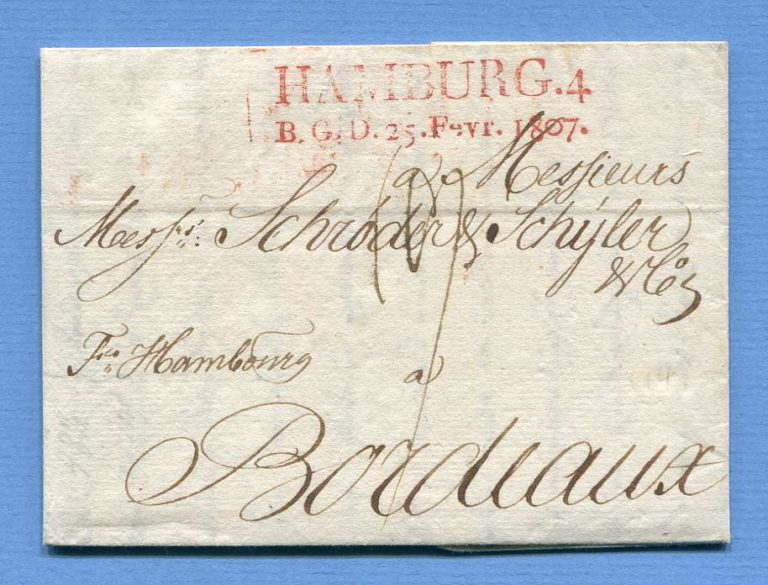 HAMBURG.4
B.G.D. 25.Fevr. 1807.
a Messieurs
Messrs: Schröder & Schÿler
& Co
Fco Hambourg
a
Bordeaux